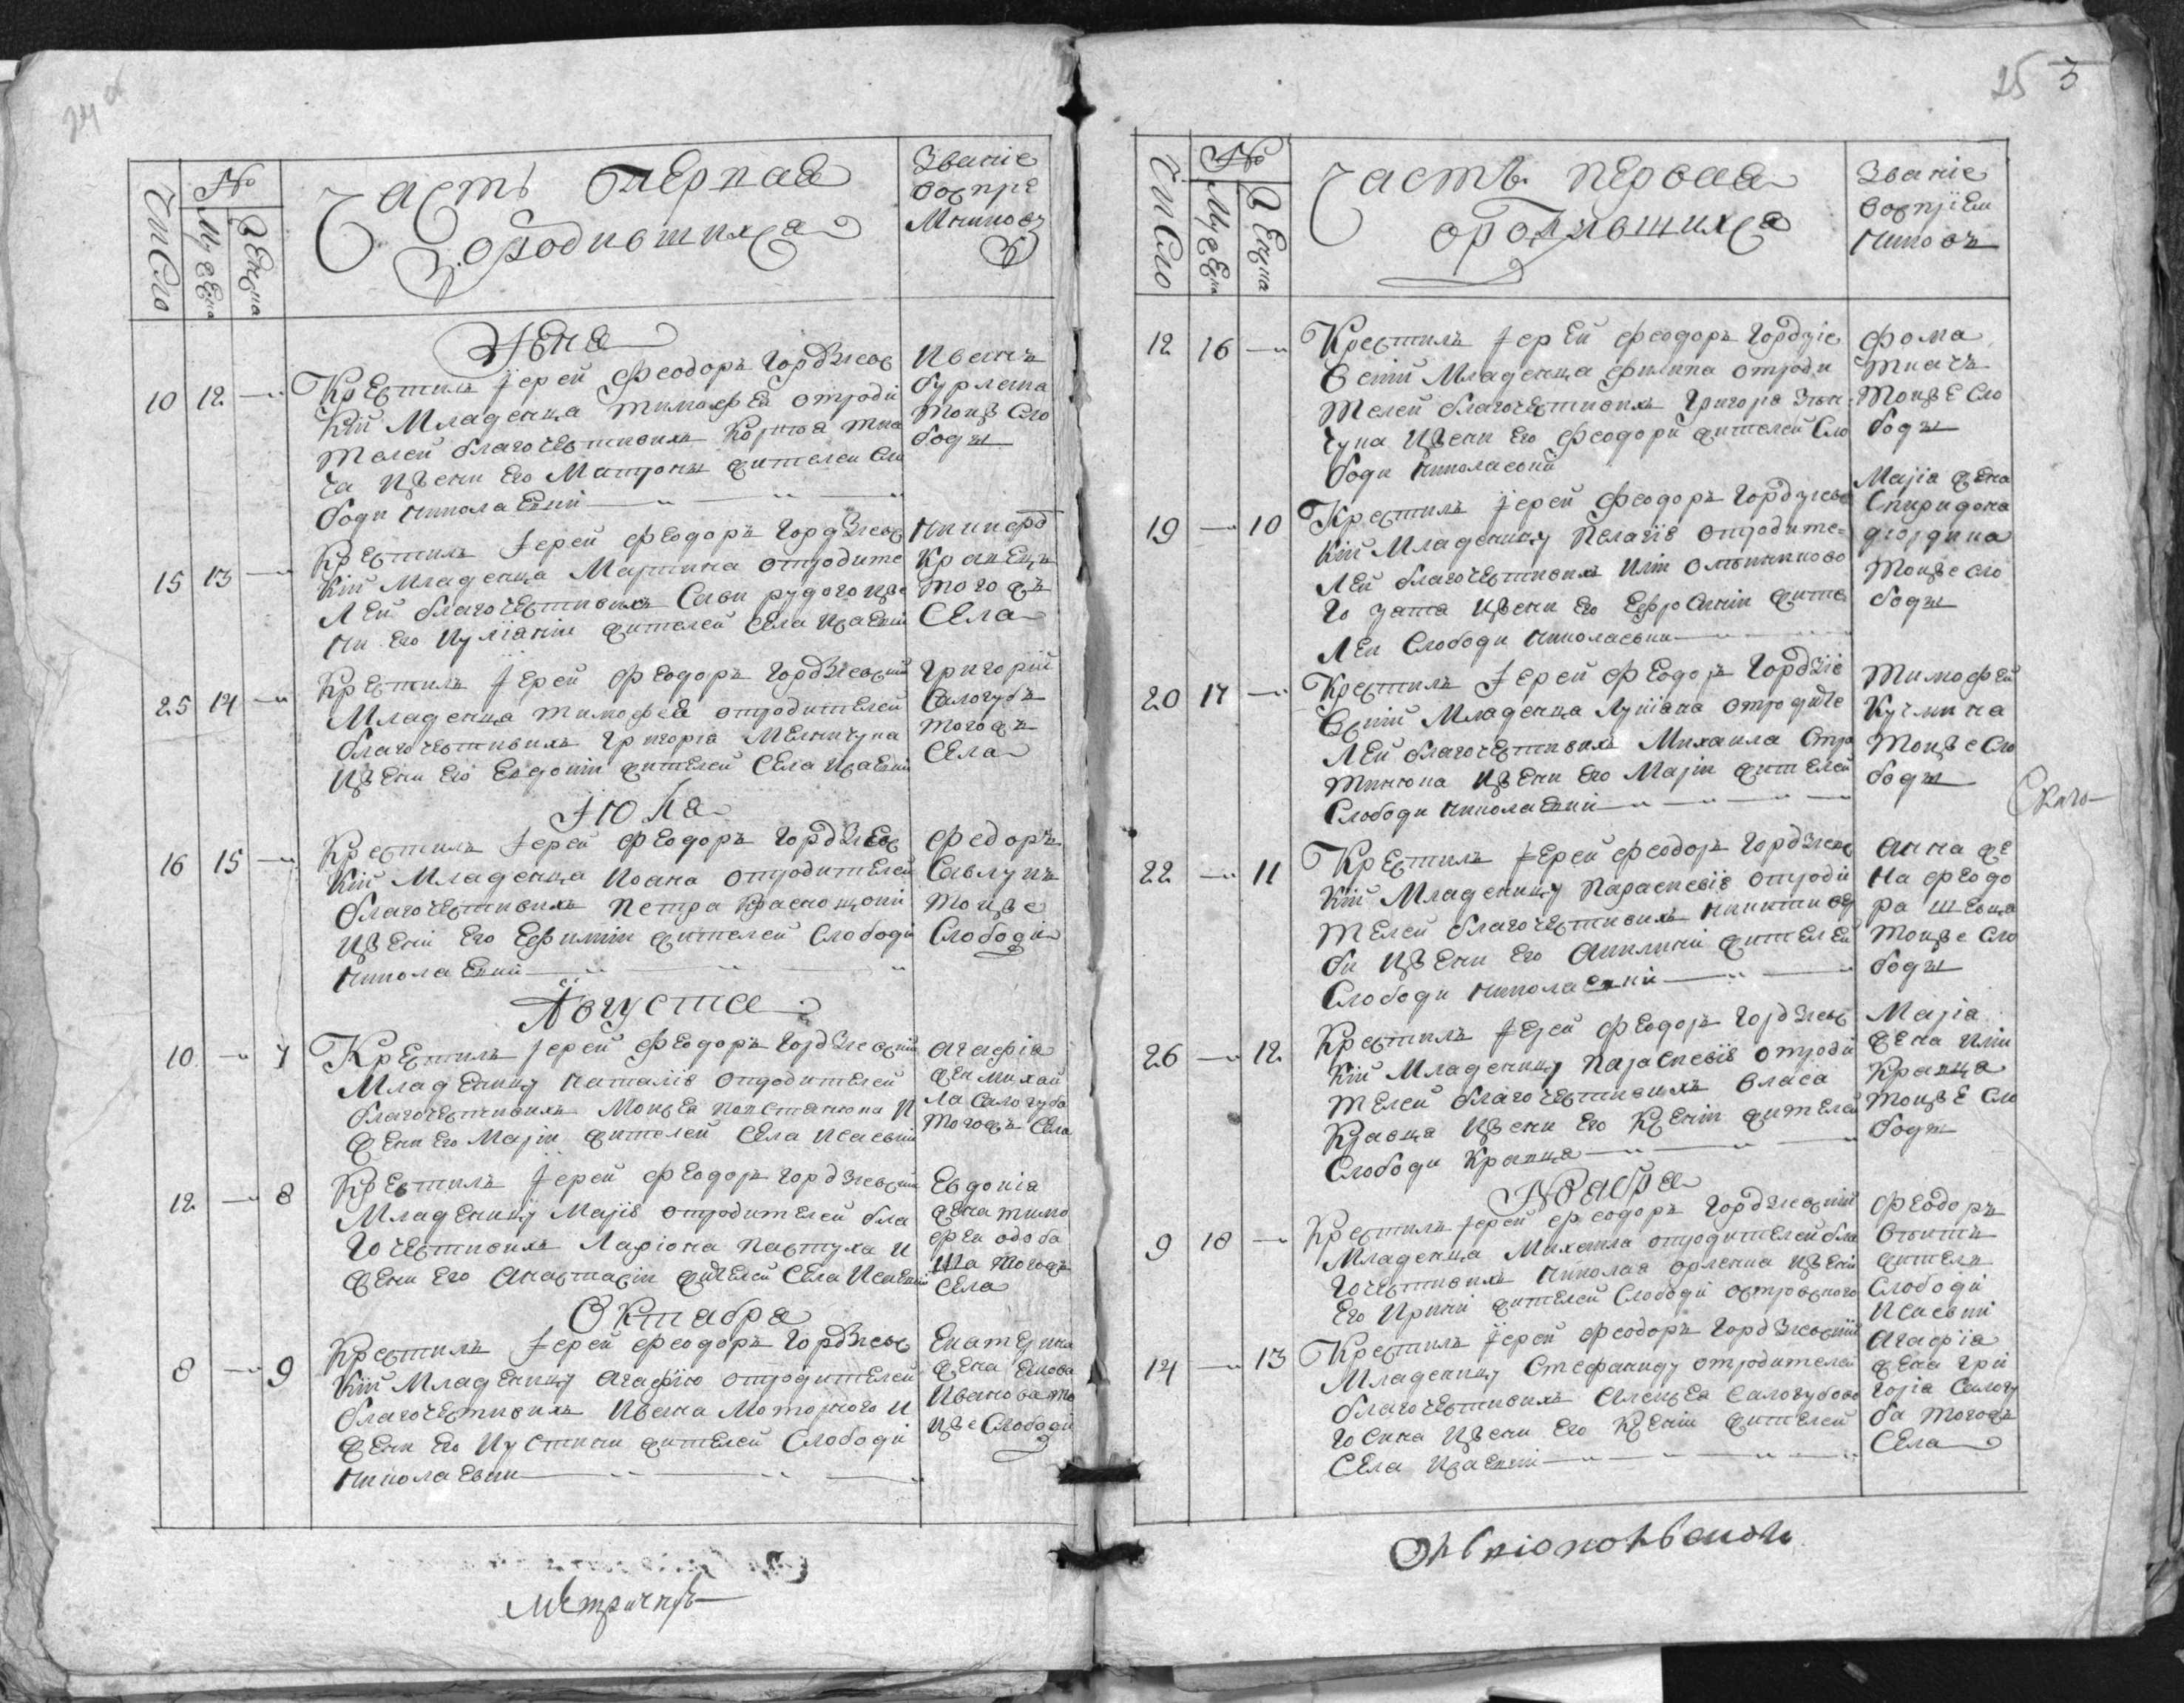 Часть перпая
ородившихся
Звание
воспрѣ
мниковъ
Число
№
Мужеска
Женска
Іюня
10 12 — Крестилъ Іерей Феодоръ Гордзіевс
кій Младенца Тимофея отроди
телей благочестивихъ Корнія Тка
ча ижени его Матроны жителей Сло
боди Николаевки
Иванъ
бурлака
тояже сло
боды
15 13 — Крестилъ Іерей Феодоръ Гордзіевс
кій Младенца Мартина отродите
лей благочестивихъ Сави рудого иже
ни его Иуліянии жителей Села Исаевки
Никифоръ
Кравецъ
тогожъ
Села
25 14 — Крестилъ Іерей Феодоръ Гордзіевский
Младенца Тимофея отродителей
благочестивихъ Григорія Мельничука
ижени его Евдокіи жителей Села Исаевки
Григорій
Салогубъ
тогожъ
Села
Іюля
16 15 — Крестилъ Іерей Феодоръ Гордзіевс
кій Младенца Иоана отродителей
благочестивихъ Петра Краснощокі
ижени его Ефимии жителей Слободи
Николаевки
Федоръ
Савлукъ
тояже
Слободи
Августа
10 — 7 Крестилъ Іерей Феодоръ Гордзіевский
Младеницу Наталію отродителей
благочестивихъ Моисея Константюка и
жени его Маріи жителей Села Исаевки
Агафія
жен Михай
ла Салогуба
тогожъ Села
12 — 8 Крестилъ Іерей Феодоръ Гордзіевский
Младеницу Марію отродителей бла
гочестивихъ Ларіона Пастуха и
жени его Анастасіи жителей Села Исаевки
Евдокія
жена Тимо
фея
тогожъ
Села
Октября
8 — 9 Крестилъ Іерей Феодоръ Гордзіевс
кій Младеницу Агафію отродителей
благочестивихъ Ивана Моторного и
жени его Иустини жителей Слободи
Николаевки
Екатерина
жена
Иванова то
яже Слободи
Метрикъ
25 3
Часть первая
ородившихся
Звание
воспріем
никовъ
Число
№
Мужеска
Женска
12 16 — Крестилъ Іерей Феодоръ Гордзіе
вскій Младенца Филипа отроди
телей благочестивихъ Григорія
ижени его Феодори жителей Сло
боди Николаевки
Фома
Ткачъ
тояже сло
боды
19 — 10 Крестилъ Іерей Феодоръ Гордзіевс
кій Младеницу Пелагію отродите=
лей благочестивихъ Иліи
го зятя ижени его Ефросинии жите
лей Слободи Николаевки
Марія жена
Спиридона
тояже сло
боды
20 17 — Крестилъ Іерей Феодоръ Гордзіе
вскій Младенца Лукіана отродите
лей благочестивихъ Михаила
ижени его Маріи жителей
Слободи Николаевки
Тимофей
Кучмина
тояже Сло
боды
22 — 11 Крестилъ Іерей Феодоръ Гордзіевс
кій Младеницу Параскевію отроди
телей благочестивихъ
ижени его Акилини жителей
Слободи Николаевки
Анна же
на Феодо
ра Шевца
тояже Сло
боды
26 — 12 Крестилъ Іерей Феодоръ Гордзіевс
кій Младеницу Параскевію отроди
телей благочестивихъ Власа
Кравца ижени его Ксении жителей
Слободи Кравца
Марія
жена Иліи
Кравца
тояже Сло
боды
Ноября
9 18 — Крестилъ Іерей Феодоръ Гордзіевский
Младенца Михаила отродителей бла
гочестивихъ Николая Орленка ижени
его Ирини жителей Слободи Островского
Феодоръ
жителъ
Слободи
Исаевки
14 — 13 Крестилъ Іерей Феодоръ Гордзіевский
Младеницу Стефаниду отродителей
благочестивихъ Алексея Салогубово
го сина ижени его Ксении жителей
Села Исаевки
Агафія
жена Гри
горія Салогу
ба тогожъ
Села